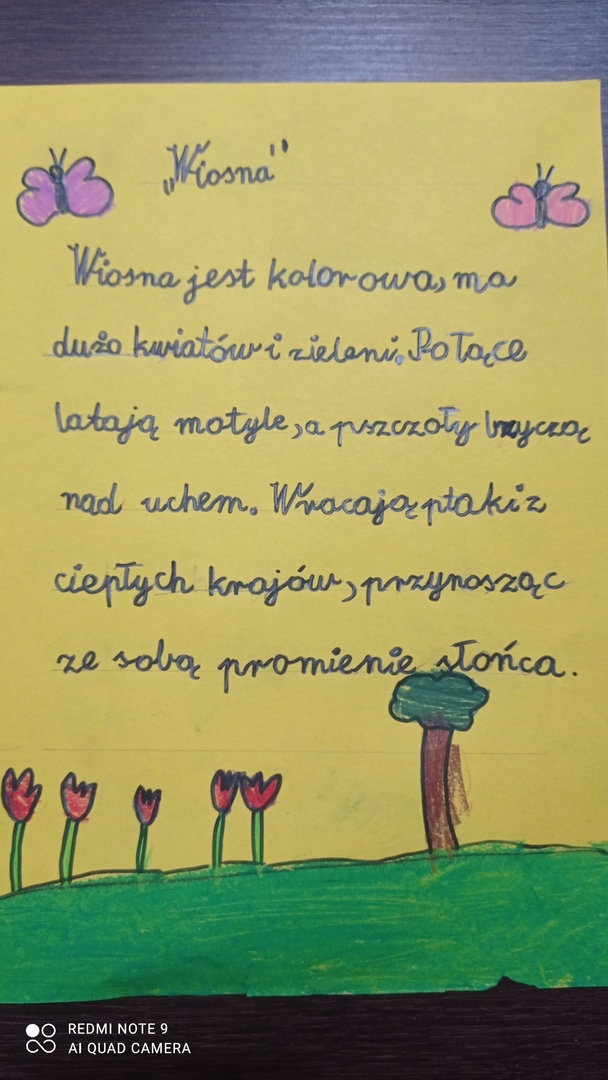 „Wiosna"
Wiosna jest kolorowa, ma
dużo kwiatów i zieleni. Po łące
latają motyle, a pszczoły bzyczą
nad uchem. Wracają ptaki z
ciepłych krajów, przynosząc
ze sobą promienie słońca.
REDMI NOTE 9
AI QUAD CAMERA